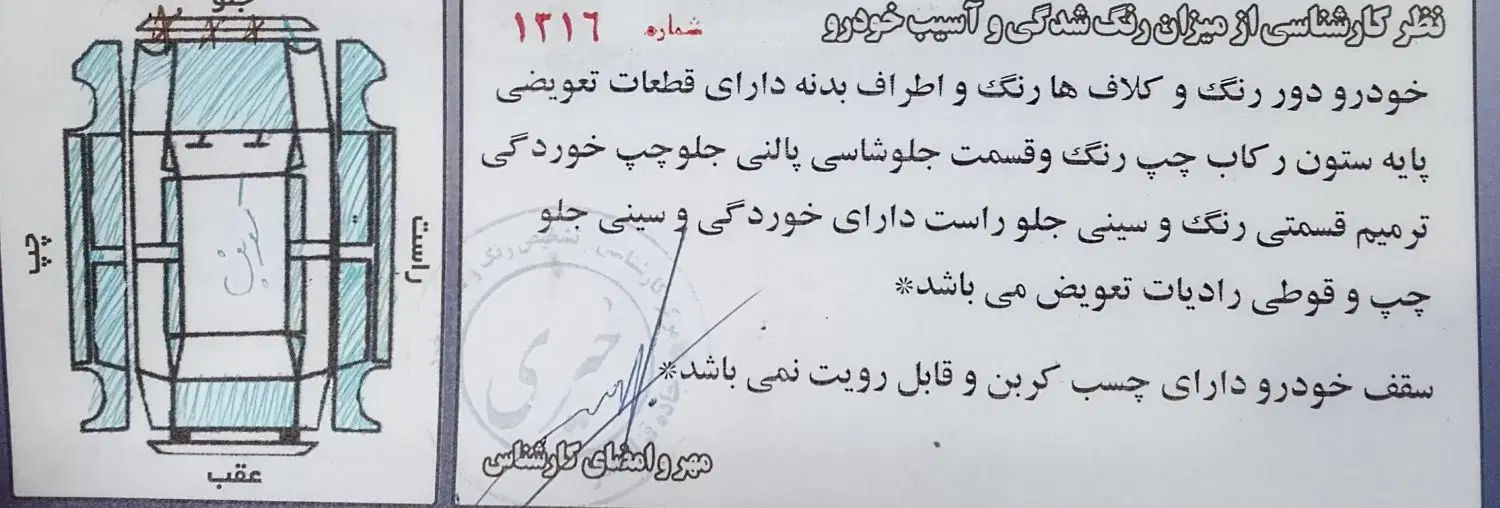 جلو
چپ
راست
کربن
عقب
نظر کارشناسی از میزان رنگ شدگی و آسیب خودرو
شماره ۱۳۱۶
خودرو دور رنگ و کلاف ها رنگ و اطراف بدنه دارای قطعات تعویضی
پایه ستون رکاب چپ رنگ وقسمت جلوشاسی پالنی جلوچپ خوردگی
ترمیم قسمتی رنگ و سینی جلو راست دارای خوردگی و سینی جلو
چپ و قوطی رادیات تعویض می باشد*
سقف خودرو دارای چسب کربن و قابل رویت نمی باشد*
مهر و امضای کارشناس